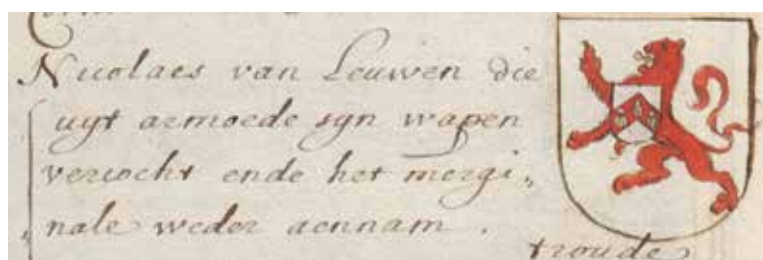 Nicolaes van Leuwen die
uyt aermoede syn wapen
vercocht ende het mergi„
nale weder aennam.
troude